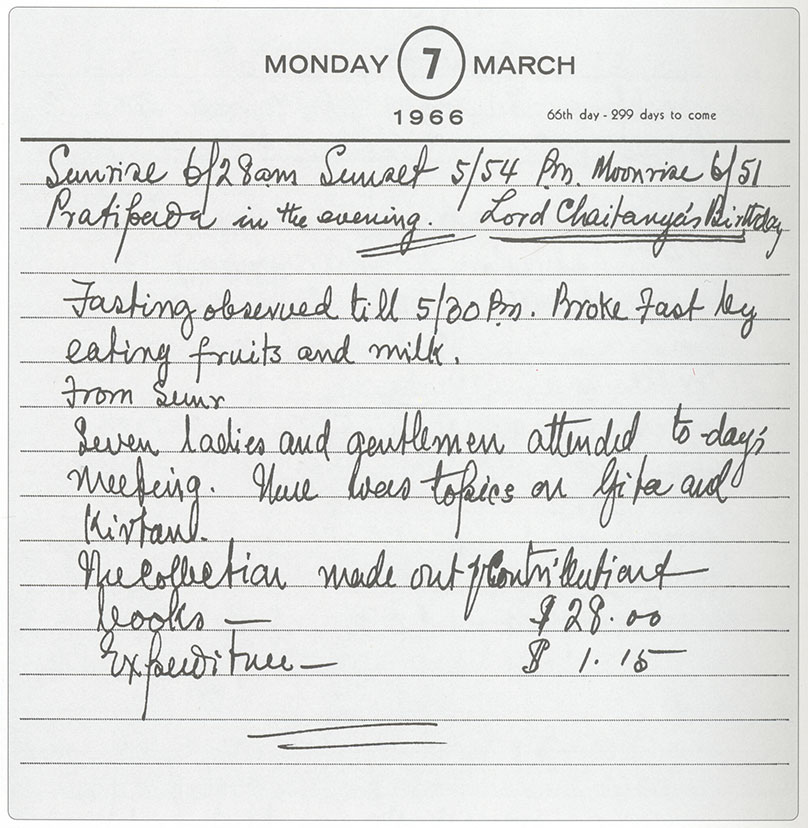 MONDAY 7 MARCH
1966
66th day - 299 days to come
Sunrise 6/28am Sunset 5/54 Pm. Moonrise 6/51
Pratipada in the evening. Lord Chaitanya's Birthday
Fasting observed till 5/30 Pm. Broke Fast by
eating fruits and milk.
From Sunr
Seven ladies and gentlemen attended to-day's
meeting. There was topics on Gita and
Kirtan.
The collection made out of Contribution &
books — $ 28.00
Expenditure — $ 1.15